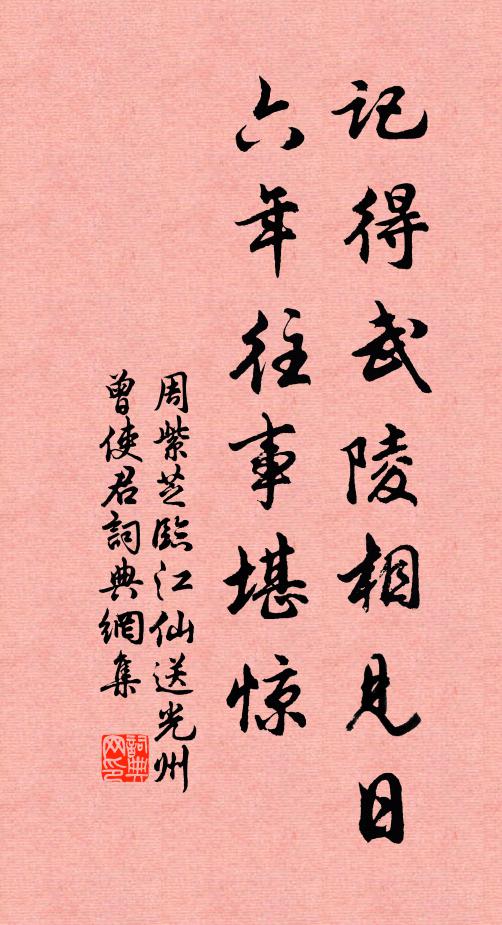 记得武陵相见日
六年往事堪惊
周紫芝临江仙送光州
曾使君词典網集
詞典
网印